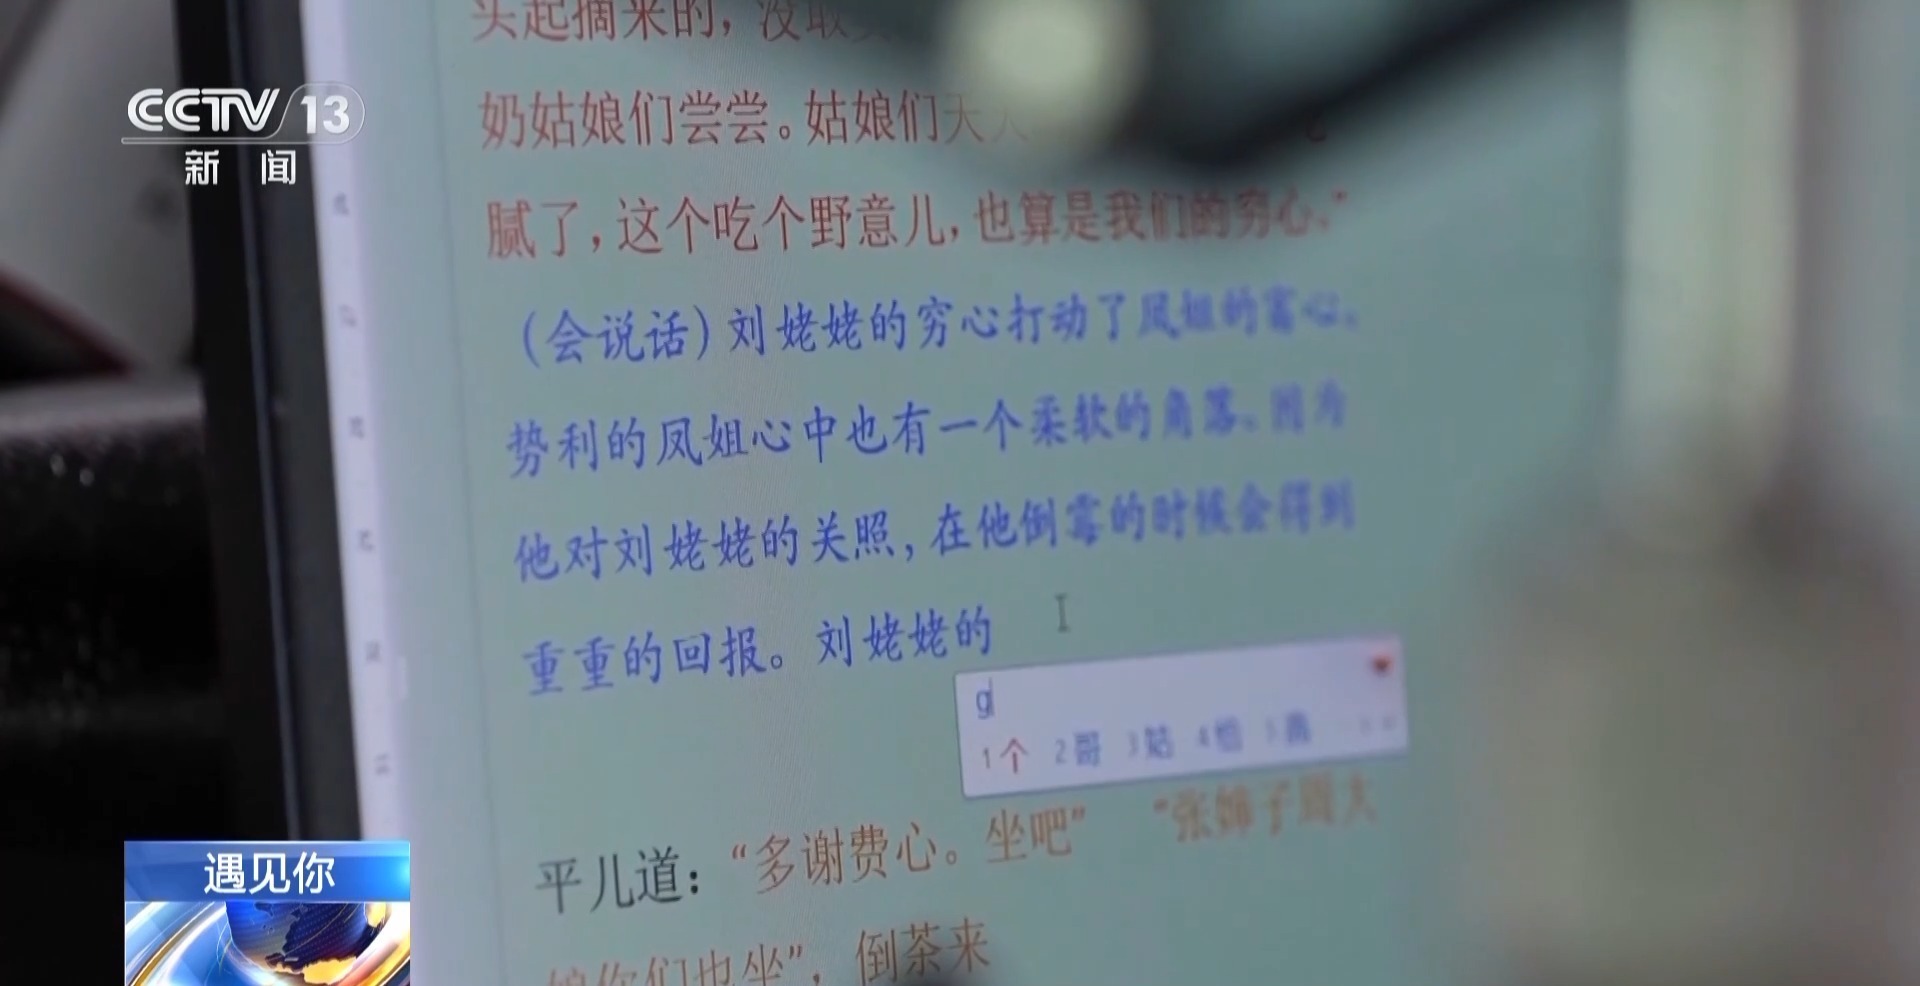 头起摘来的，没敢
CCTV 13
新闻
奶姑娘们尝尝。姑娘们天天
腻了，这个吃个野意儿，也算是我们的穷心。”
（会说话）刘姥姥的穷心打动了凤姐的富心、
势利的凤姐心中也有一个柔软的角落。因为
他对刘姥姥的关照，在他倒霉的时候会得到
重重的回报。刘姥姥的
g
1个 2哥 3姑 4给
平儿道：“多谢费心。坐吧” “张婶子周大
娘你们也坐”，倒茶来
遇见你